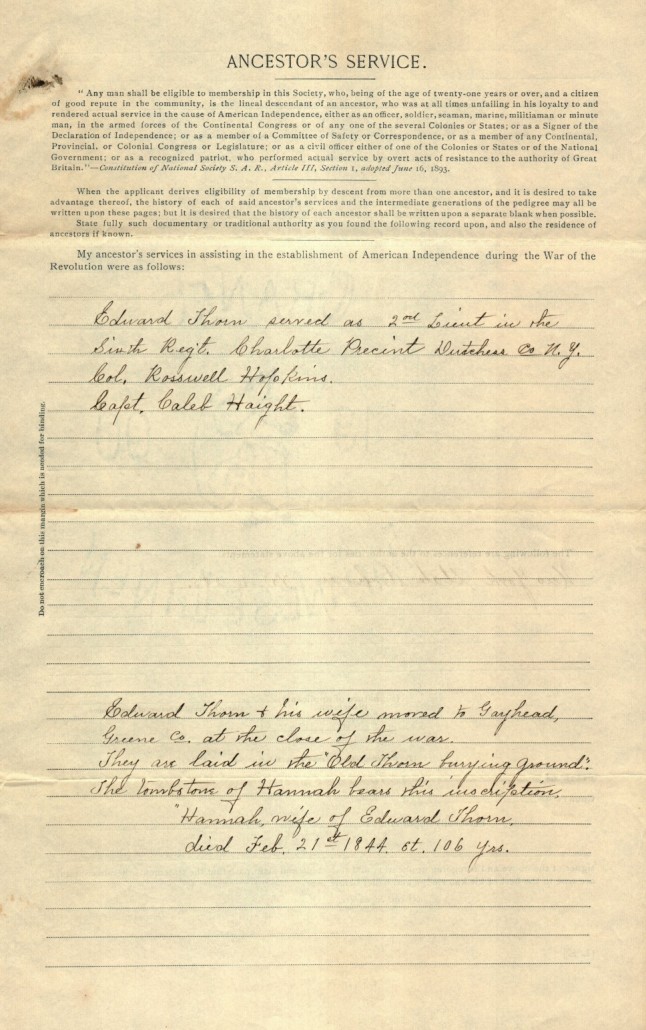 ANCESTOR'S SERVICE.
" Any man shall be eligible to membership in this Society, who, being of the age of twenty-one years or over, and a citizen
of good repute in the community, is the lineal descendant of an ancestor, who was at all times unfailing in his loyalty to and
rendered actual service in the cause of American Independence, either as an officer, soldier, seaman, marine, militiaman or minute
man, in the armed forces of the Continental Congress or of any one of the several Colonies or States; or as a Signer of the
Declaration of Independence; or as a member of a Committee of Safety or Correspondence, or as a member of any Continental,
Provincial, or Colonial Congress or Legislature; or as a civil officer either of one of the Colonies or States or of the National
Government; or as a recognized patriot, who performed actual service by overt acts of resistance to the authority of Great
Britain."—Constitution of National Society S. A. R., Article III, Section 1, adopted June 16, 1893.
When the applicant derives eligibility of membership by descent from more than one ancestor, and it is desired to take
advantage thereof, the history of each of said ancestor's services and the intermediate generations of the pedigree may all be
written upon these pages; but it is desired that the history of each ancestor shall be written upon a separate blank when possible.
State fully such documentary or traditional authority as you found the following record upon, and also the residence of
ancestors if known.
My ancestor's services in assisting in the establishment of American Independence during the War of the
Revolution were as follows:
Edward Thorn served as 2nd Lieut in the
Sixth Regt. Charlotte Precint Dutchess Co N.Y.
Col. Rosswell Hopkins.
Capt. Caleb Haight.
Do not encroach on this margin which is needed for binding.
Edward Thorn & his wife moved to Gayhead,
Greene Co. at the close of the war.
They are laid in the "Old Thorn burying ground".
The tombstone of Hannah bears this inscription.
"Hannah, wife of Edward Thorn.
died Feb. 21st 1844. et. 106 yrs.